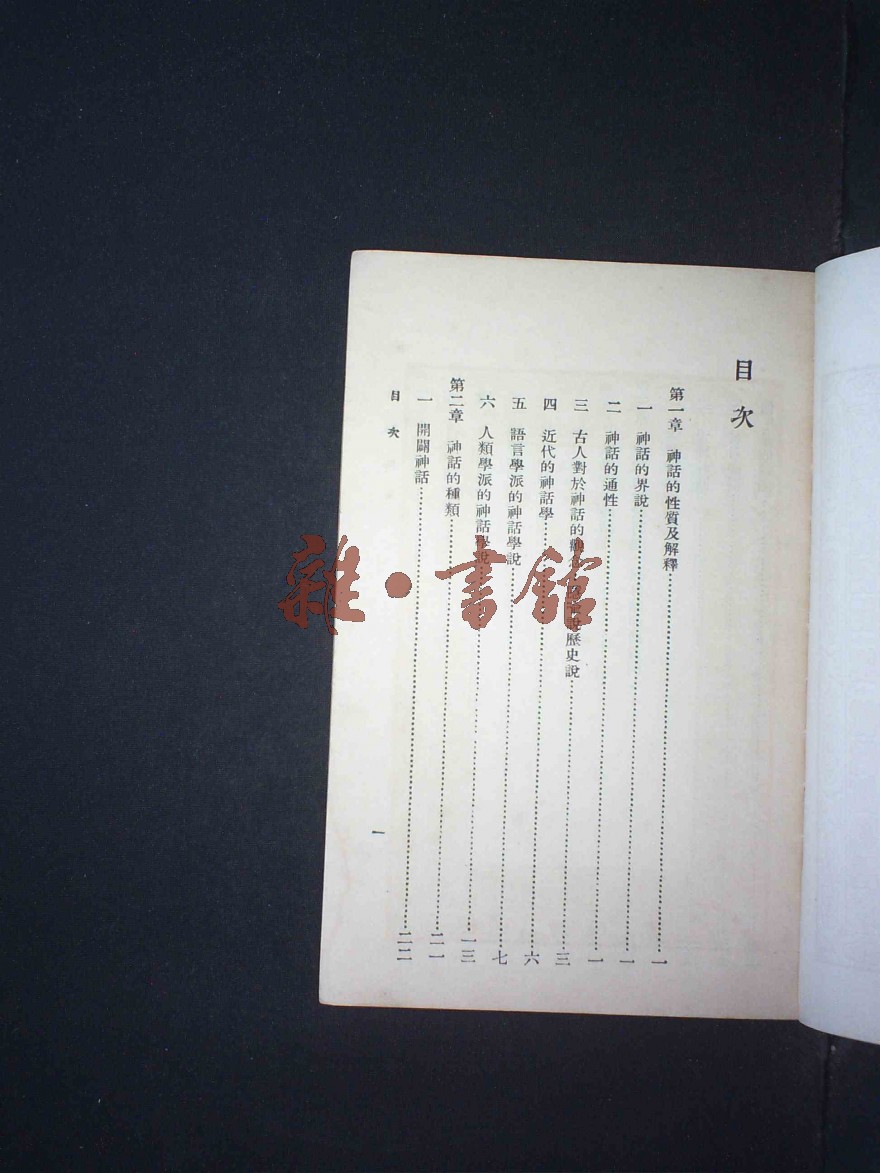 目次
第一章 神話的性質及解釋……一
一 神話的界說……一
二 神話的通性……一
三 古人對於神話的 歷史說……三
四 近代的神話學……六
五 語言學派的神話學說……七
六 人類學派的神話學說……一三
第二章 神話的種類……二一
一 開闢神話……二二
目次
一
雜·書館